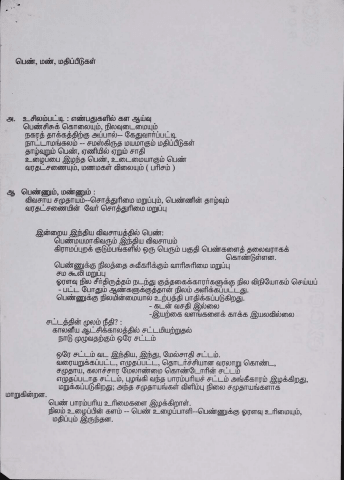 பெண், மண், மதிப்பீடுகள்
அ. உசிலம்பட்டி : எண்பதுகளில் கள ஆய்வு
பெண்சிசுக் கொலையும், நிலவுடைமையும்
நகரத் தாக்கத்திற்கு அப்பால்-- கேதுவார்ப்பட்டி
நாட்டாமங்கலம் -- சமஸ்கிருத மயமாகும் மதிப்பீடுகள்
தாழ்வுறும் பெண், ஏணியில் ஏறும் சாதி
உழைப்பை இழந்த பெண், உடைமையாகும் பெண்
வரதட்சணையும், மணமகள் விலையும் ( பரிசம் )
ஆ பெண்ணும், மண்ணும் :
விவசாய சமுதாயம்--சொத்துரிமை மறுப்பும், பெண்ணின் தாழ்வும்
வரதட்சணையின் வேர் சொத்துரிமை மறுப்பு
இன்றைய இந்திய விவசாயத்தில் பெண்:
பெண்மயமாகிவரும் இந்திய விவசாயம்
கிராமப்புறக் குடும்பங்களில் ஒரு பெரும் பகுதி பெண்களைத் தலைவராகக்
கொண்டுள்ளன.
பெண்ணுக்கு நிலத்தை சுவீகரிக்கும் வாரிசுரிமை மறுப்பு
சம கூலி மறுப்பு
ஓரளவு நில சீர்திருத்தம் நடந்து குத்தகைக்காரர்களுக்கு நில விநியோகம் செய்யப்
- பட்ட போதும் ஆண்களுக்குத்தான் நிலம் அளிக்கப்பட்டது.
பெண்ணுக்கு நிலமின்மையால் உற்பத்தி பாதிக்கப்படுகிறது.
- கடன் வசதி இல்லை
-இயற்கை வளங்களைக் காக்க இயலவில்லை
சட்டத்தின் மூலம் நீதி? :
காலனிய ஆட்சிக்காலத்தில் சட்டமியற்றுதல்
நாடு முழுவதற்கும் ஒரே சட்டம்
ஒரே சட்டம் வட இந்திய, இந்து, மேல்சாதி சட்டம்.
வரையறுக்கப்பட்ட, எழுதப்பட்ட, தொடர்ச்சியான வரலாறு கொண்ட,
சமுதாய, கலாச்சார மேலாண்மை கொண்டோரின் சட்டம்
எழுதப்படாத சட்டம், புழங்கி வந்த பாரம்பரியச் சட்டம் அங்கீகாரம் இழக்கிறது,
மறுக்கப்படுகிறது; அந்த சமுதாயங்கள் விளிம்பு நிலை சமுதாயங்களாக
மாறுகின்றன.
பெண் பாரம்பரிய உரிமைகளை இழக்கிறாள்.
நிலம் உழைப்பின் களம் -- பெண் உழைப்பாளி--பெண்ணுக்கு ஓரளவு உரிமையும்,
மதிப்பும் இருந்தன.